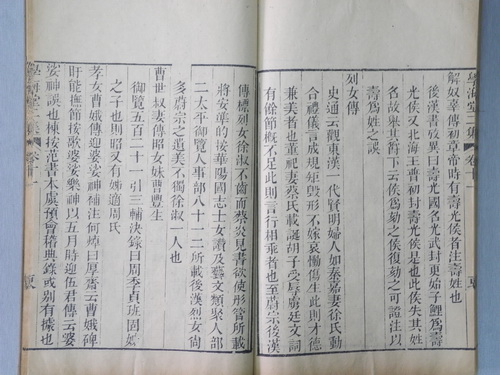 學海堂二集 卷十一
解奴辜傳初章帝時有壽光侯者注壽姓也
後漢書攷異曰壽光國名光武封更始子鯉爲壽
光侯又北海王普初封壽光侯是也此侯失其姓
名故舉其爵下云侯爲劾之侯復劾之可證注以
壽爲姓之誤
列女傳
史通云觀東漢一代賢明婦人如秦嘉妻徐氏動
合禮儀言成規矩毀形不嫁哀慟傷生此則才德
兼美者也董祀妻蔡氏載誕胡子受辱虜廷文詞
有餘節槪不足此則言行相乖者也至蔚宗後漢
傳標列女徐淑不齒而蔡炎見書欲使彤管所載
將安準的接華陽國志士女讚及藝文類聚人部
二太平御覽人事部八十一二所載後漢烈女尙
多蔚宗之遺美不獨徐淑一人也
曹世叔妻傳昭女妹曹豐生
御覽五百二十一引三輔決錄曰周季貞班固姪
之子也則昭又有姊適周氏
孝女曹娥傳迎婆娑神補注何焯曰厚齋云曹娥碑
盱能撫節按歌婆娑樂神以五月時迎伍君傳云婆
娑神誤也棟按范書本虞預會稽典錄或別有據也
學海堂二集 卷十一